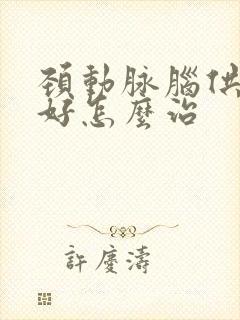 頸動脉腦供
好怎麼治
許慶濤